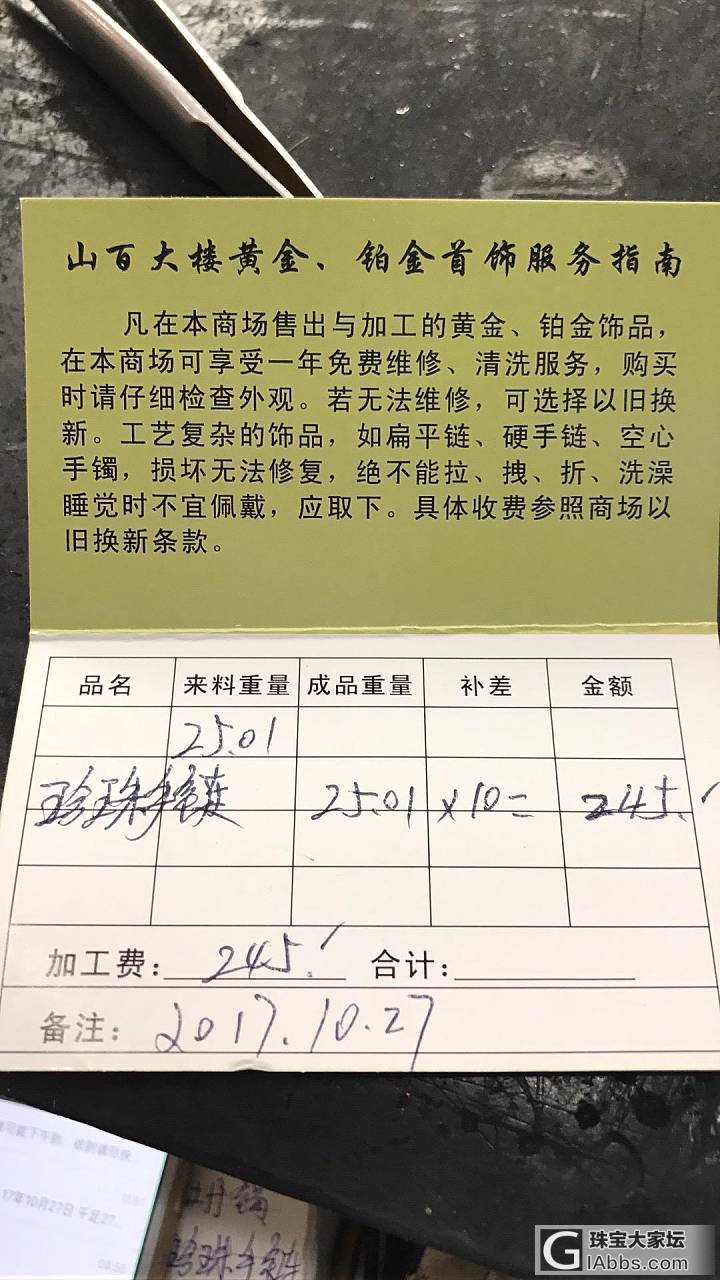 山百大楼黄金、铂金首饰服务指南
凡在本商场售出与加工的黄金、铂金饰品，
在本商场可享受一年免费维修、清洗服务，购买
时请仔细检查外观。若无法维修，可选择以旧换
新。工艺复杂的饰品，如扁平链、硬手链、空心
手镯，损坏无法修复，绝不能拉、拽、折、洗澡
睡觉时不宜佩戴，应取下。具体收费参照商场以
旧换新条款。
品名 来料重量 成品重量 补差 金额
25.01
珍珠手链 25.01 x10= 245.
加工费： 245. 合计：
备注： 2017.10.27
17年10月27日 千足27...
珍珠手链
珠宝大家坛
GIAbbs.com